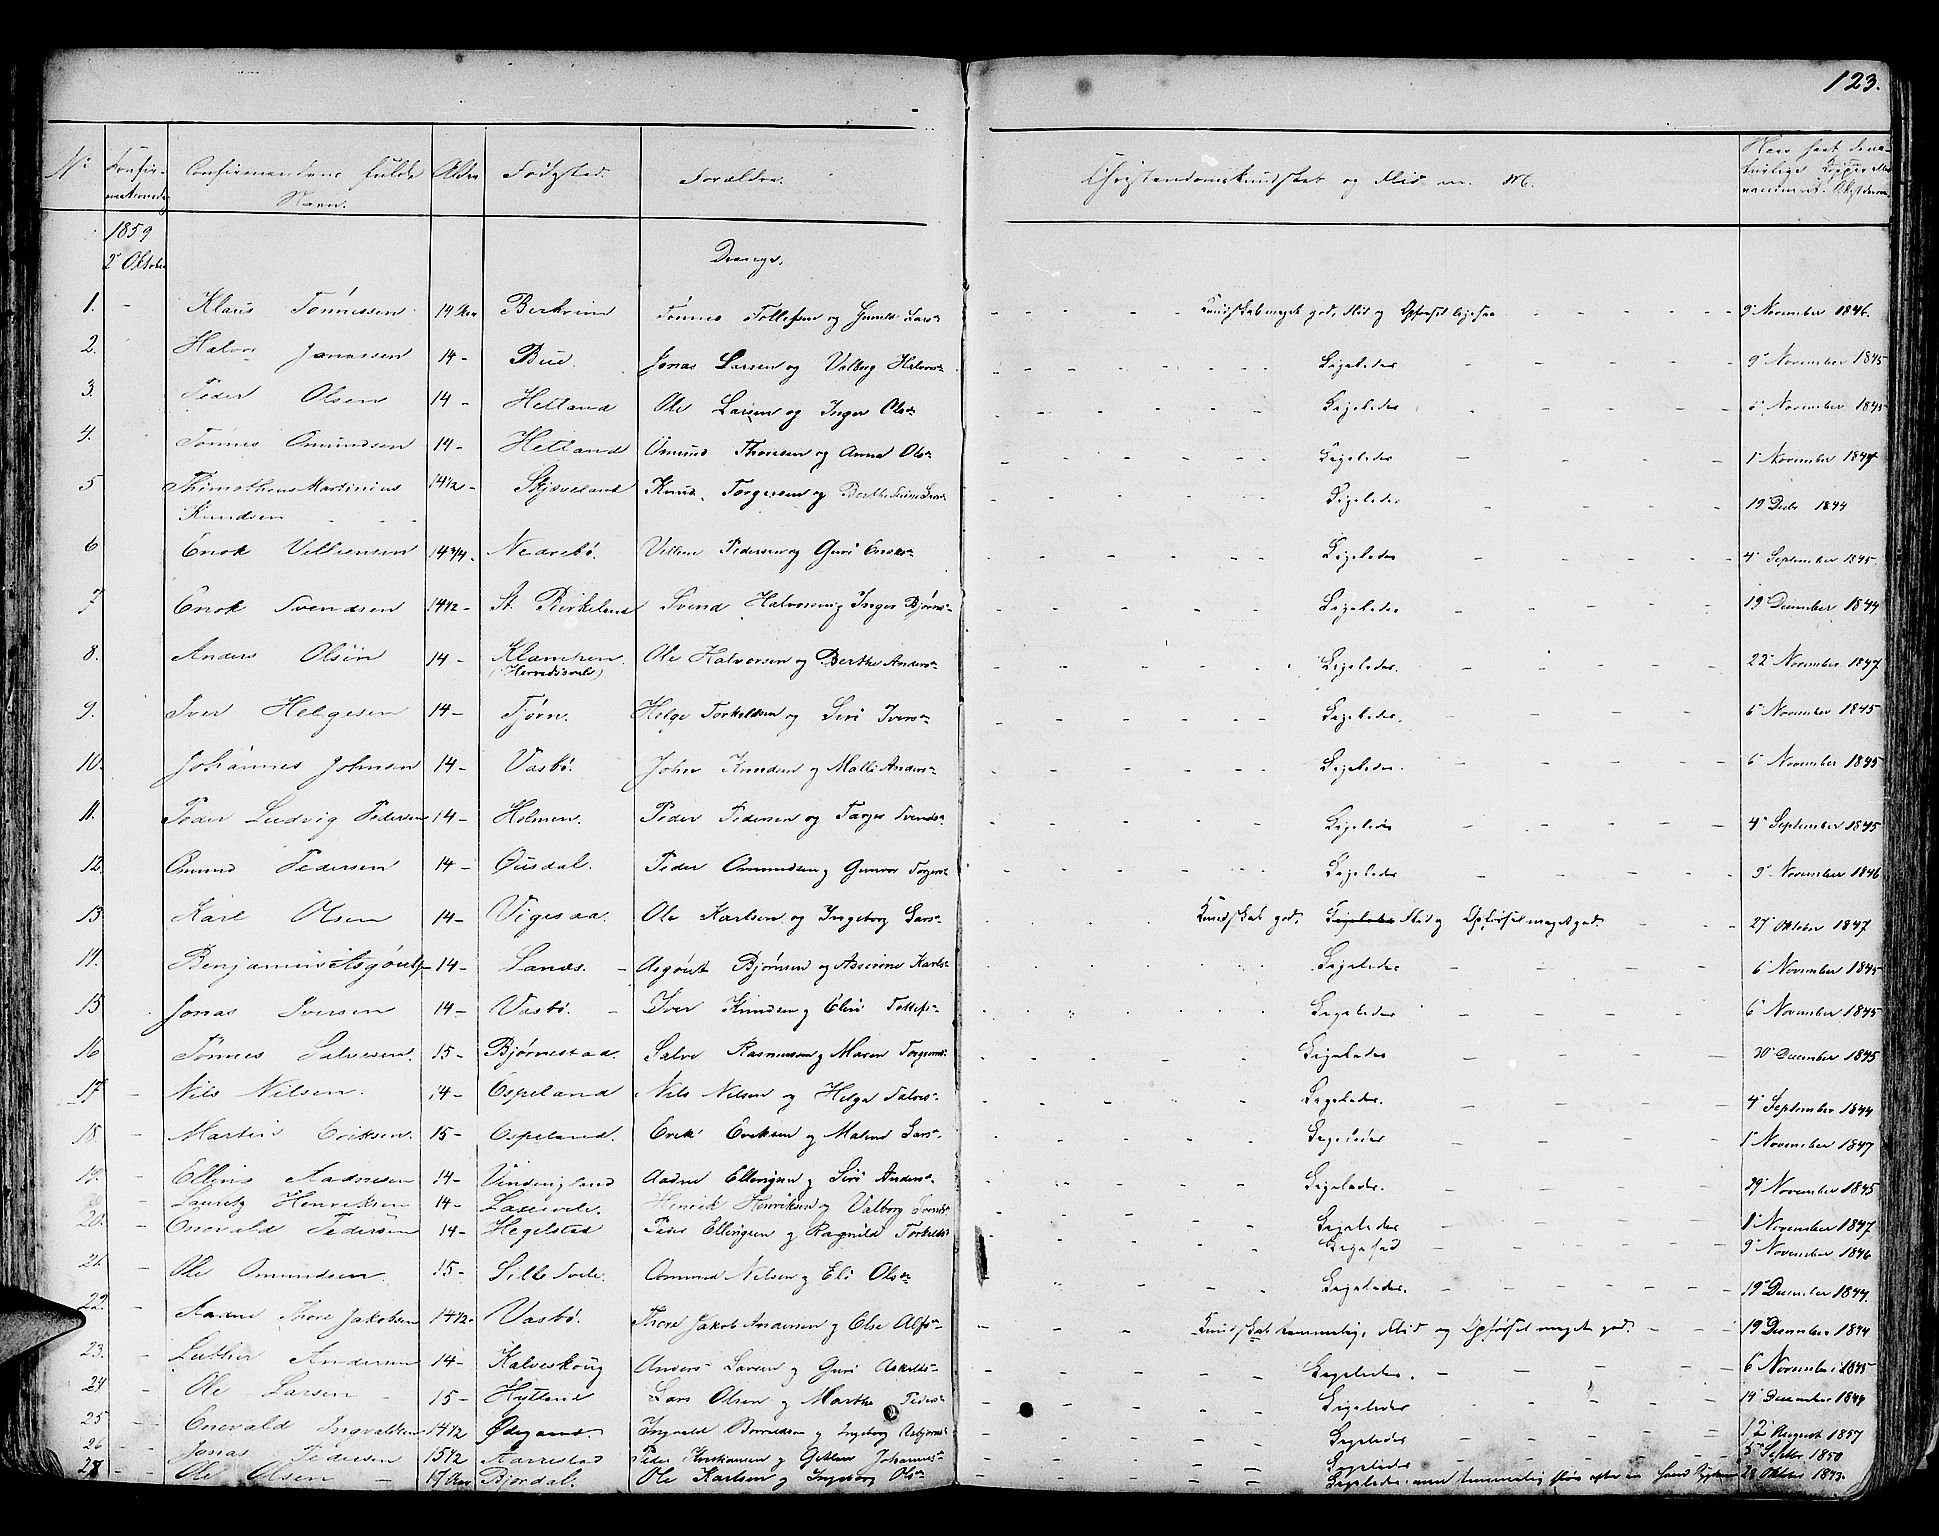 123.
No Confir- Confirmandens fulde Alder Fødested. Forældre. Christendomskundskab og Flid m. M.
Navn.
1859
2 Oktober Drenge.
1. - Klaus Tønnessen 14 Aar Berkrim Tønnes Tollefsen og Gunild Lars- Kundskab meget god, Flid og Opførsel ligesaa 9 November 1846.
2. Halvor Jonassen 14 - Bue. Jonas Larsen og Valborg Halvors- Ligeledes 9 November 1845
3. Peder Olsen 14 - Hetland Ole Larsen og Inger Ols- Ligeledes 6 November 1845
4. Tønnes Omundsen 14 - Hetland Omund Thorsen og Anna Ols- Ligeledes 1 November 1847
5 Thimotheus Martinius 14 1/2 - Skjæveland Knud Torgersen og Berthe Ligeledes 19 Decbr 1844
Knudsen
6 Enok Villumsen 14 3/4 - Nedrebø. Villum Pedersen og Guri Ligeledes 4 September 1845
7 Enok Svendsen 14 1/2 - St. Birkeland Svend Halvorsen og Inger Bjørns- Ligeledes 19 December 1844
8. Anders Olsen 14 - Ole Halvorsen og Berthe Anders- Ligeledes 22 November 1847
9. Iver Helgesen 14 - Tjørn. Helge Torkeldsen og Siri Ivers- Ligeledes. 6 November 1845
10. Johannes Johnsen 14 - Vasbø. John Knudsen og Malli Anders- Ligeledes. 6 November 1845
11. Peder Ludvig Pedersen 14 - Holmen. Peder Pedersen og Svends- Ligeledes 4 September 1845
12. Omund Pedersen 14 - Øusdal. Peder Ommundsen og Gunvor Torgers- Ligeledes 9 November 1846
13. Karl Olsen 14 - Vigesaa. Ole Karlsen og Ingeborg Lars- Kundskab god, Ligeledes Flid og Opførsel meget god. 27 Oktober 1847
14. Benjamin Asgoutsen 14 - Lands. Asgout Bjørnsen og Asserine Karls- Ligeledes 6 November 1845
15 Jonas Iversen 14 - Vasbø. Iver Knudsen og Eleri Tollefs- Ligeledes 6 November 1845
16 Tønnes Salvesen. 15 - Bjørnestad. Salve Rasmussen og Maren Ligeledes 20 December 1845
17 - Nils Nilsen. 14 - Espeland Nils Nilsen og Helga Salves- Ligeledes. 4 September 1844
18. - Martin Eriksen. 15 - Espeland. Erik Eriksen og Malene Lars- Ligeledes 1 November 1847
19. - Elling Aadnesen 14 - Vindingland Aadne Ellingsen og Siri Anders- Ligeledes. 29 November 1845
Lauritz Henriksen 14 - Henrik Henriksen og Valborg Svends- Ligeledes 1 November 1847
20. - Enevald Pedersen 14 - Hegelstad Peder Ellingsen og Ragnild Torkelds- Ligesaa 9 November 1846
21. - Ole Omundsen 15 - Omund Nilsen og Eli Ols- Ligeledes. 19 December 1844.
22. - Aadne Thore Jakobsen 14 1/2 - Vasbø. Thore Jakob Andersen og Else Kundskab temmelig, Flid og Opførsel meget god. 19 December 1844
23. - Luther Andersen 14 - Kalveskoug Anders Larsen og Guri Askelds- Ligeledes. 6 November 1845
24 - Ole Larsen 15 - Hytland Lars Olsen og Marthe Peders- Ligeledes 19 December 1844
25 - Enevald Ingvaldsen 14 1/2 Ødegaard. Ingvald og Ingeborg Asbjørns- Ligeledes 12 August 1857
26 - Jonas Pedersen 15 1/2 Aarrestad Peder og Johannes- Ligeledes 5 Septbr 1850
27 - Ole Olsen 17 Aar Bjordal. Ole Karlsen og Ingeborg Ols- Ligeledes, men temmelig 28 Oktober 1843.